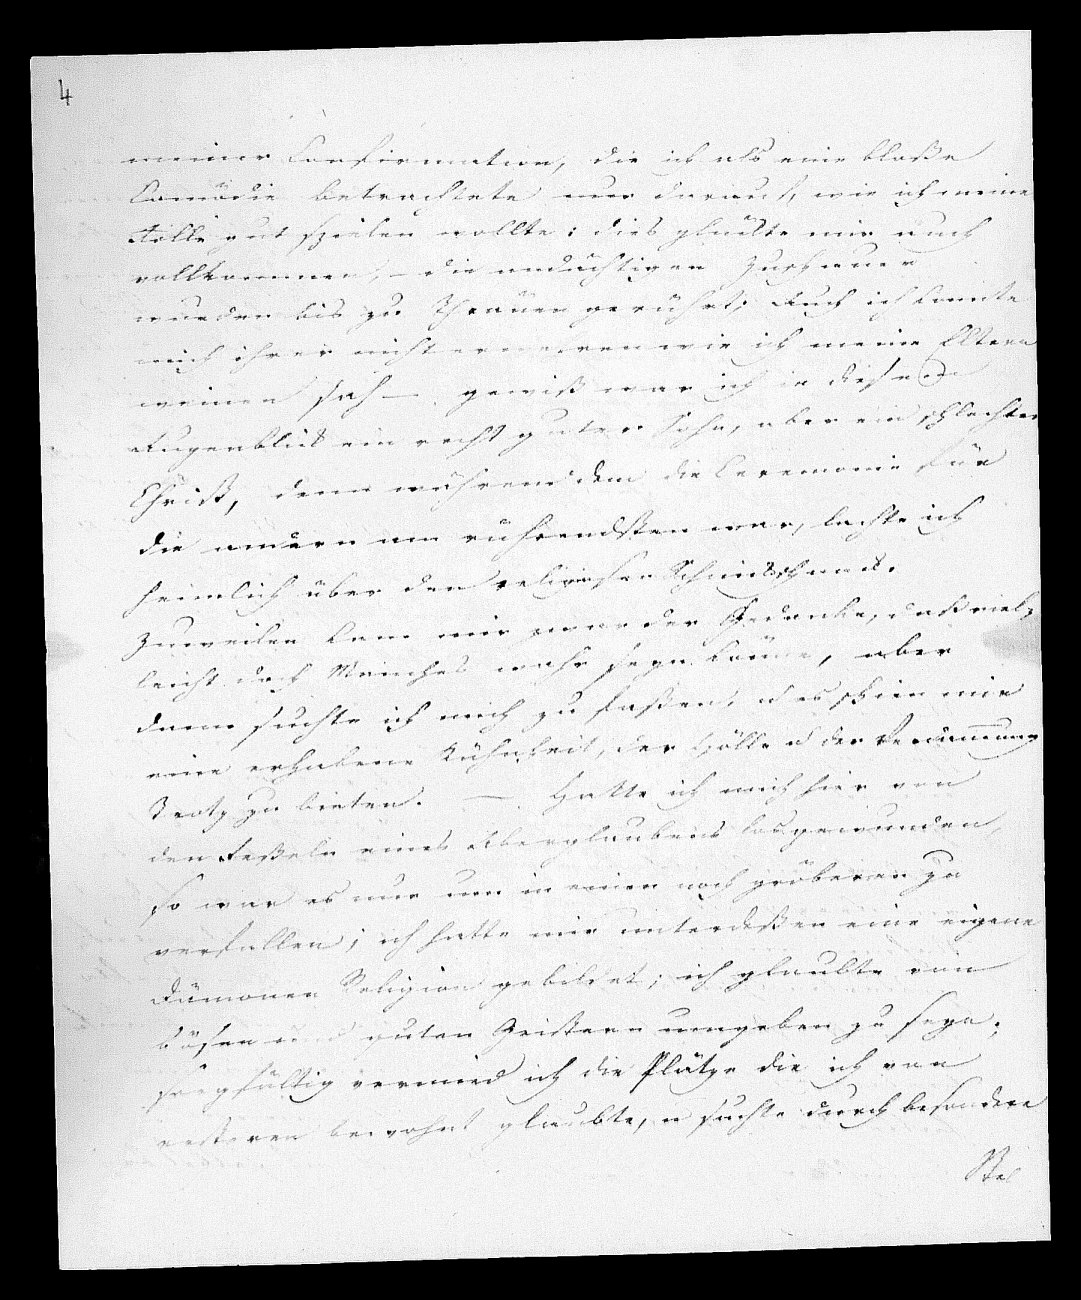 4
meiner Confirmation, die ich als eine bloße
Comödie betrachtete nur darauf, wie ich meine
Rolle gut spielen wollte; dies glückte mir auch
vollkommen, – die andächtigen Zuschauer
wurden bis zu Thränen gerührt; Auch ich konnte
mich ihrer nicht erwehren wie ich meine Eltern
weinen sah –. gewiß war ich in diesem
Augenblick ein recht guter Sohn, aber ein schlechter
Christ, denn während dem die Ceremonie für
die andern am rührendsten war, lachte ich
heimlich über den religiosen Schnickschnack.
Zuweilen kam mir zwar der Gedanke, daß viel-
leicht doch Manches wahr seyn könne, aber
dann suchte ich mich zu faßen, u es schien mir
eine erhabene Kühnheit, der Hölle u der Verdammung
Trotz zu bieten. –. Hatte ich mich hier von
den Feßeln eines Aberglaubens losgewunden,
so war es nur um in einen noch gröberen zu
verfallen; ich hatte mir unterdeßen eine eigene
Dämonen Religion gebildet; ich glaubte von
bösen und guten Geistern umgeben zu seyn;
sorgfältig vermied ich die Plätze die ich von
ersteren bewohnt glaubte, u suchte durch besondere